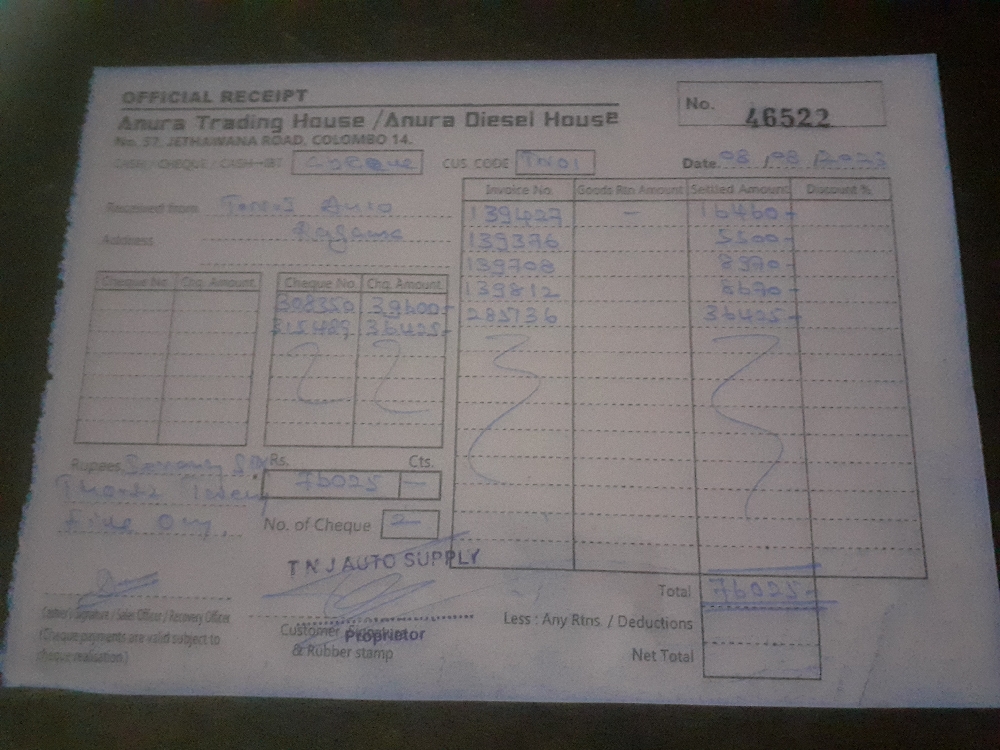 OFFICIAL RECEIPT
Anura Trading House / Anura Diesel House
No. 57, JETHAWANA ROAD, COLOMBO 14.
No. 46522
CASH / CHEQUE / CASH Cheque CUS. CODE
Date 08 / 08 /
Received from Auto
Address Ragama
Cheque No. Chq. Amount Cheque No. Chq. Amount
308350 39600-
36425-
Invoice No. Goods Rtn Amount Settled Amount Discount %
139427 - 16460-
139376 5500-
139708 8970-
139812 8670-
285736 36425-
Rupees Seventy Six
Five Only.
Rs. Cts.
76025 -
No. of Cheque 2
T N J AUTO SUPPLY
Signature / Sales Officer / Recovery Officer
(Cheque payments are valid subject to
cheque realisation)
Customer
Proprietor
& Rubber stamp
Total 76025-
Less : Any Rtns. / Deductions
Net Total